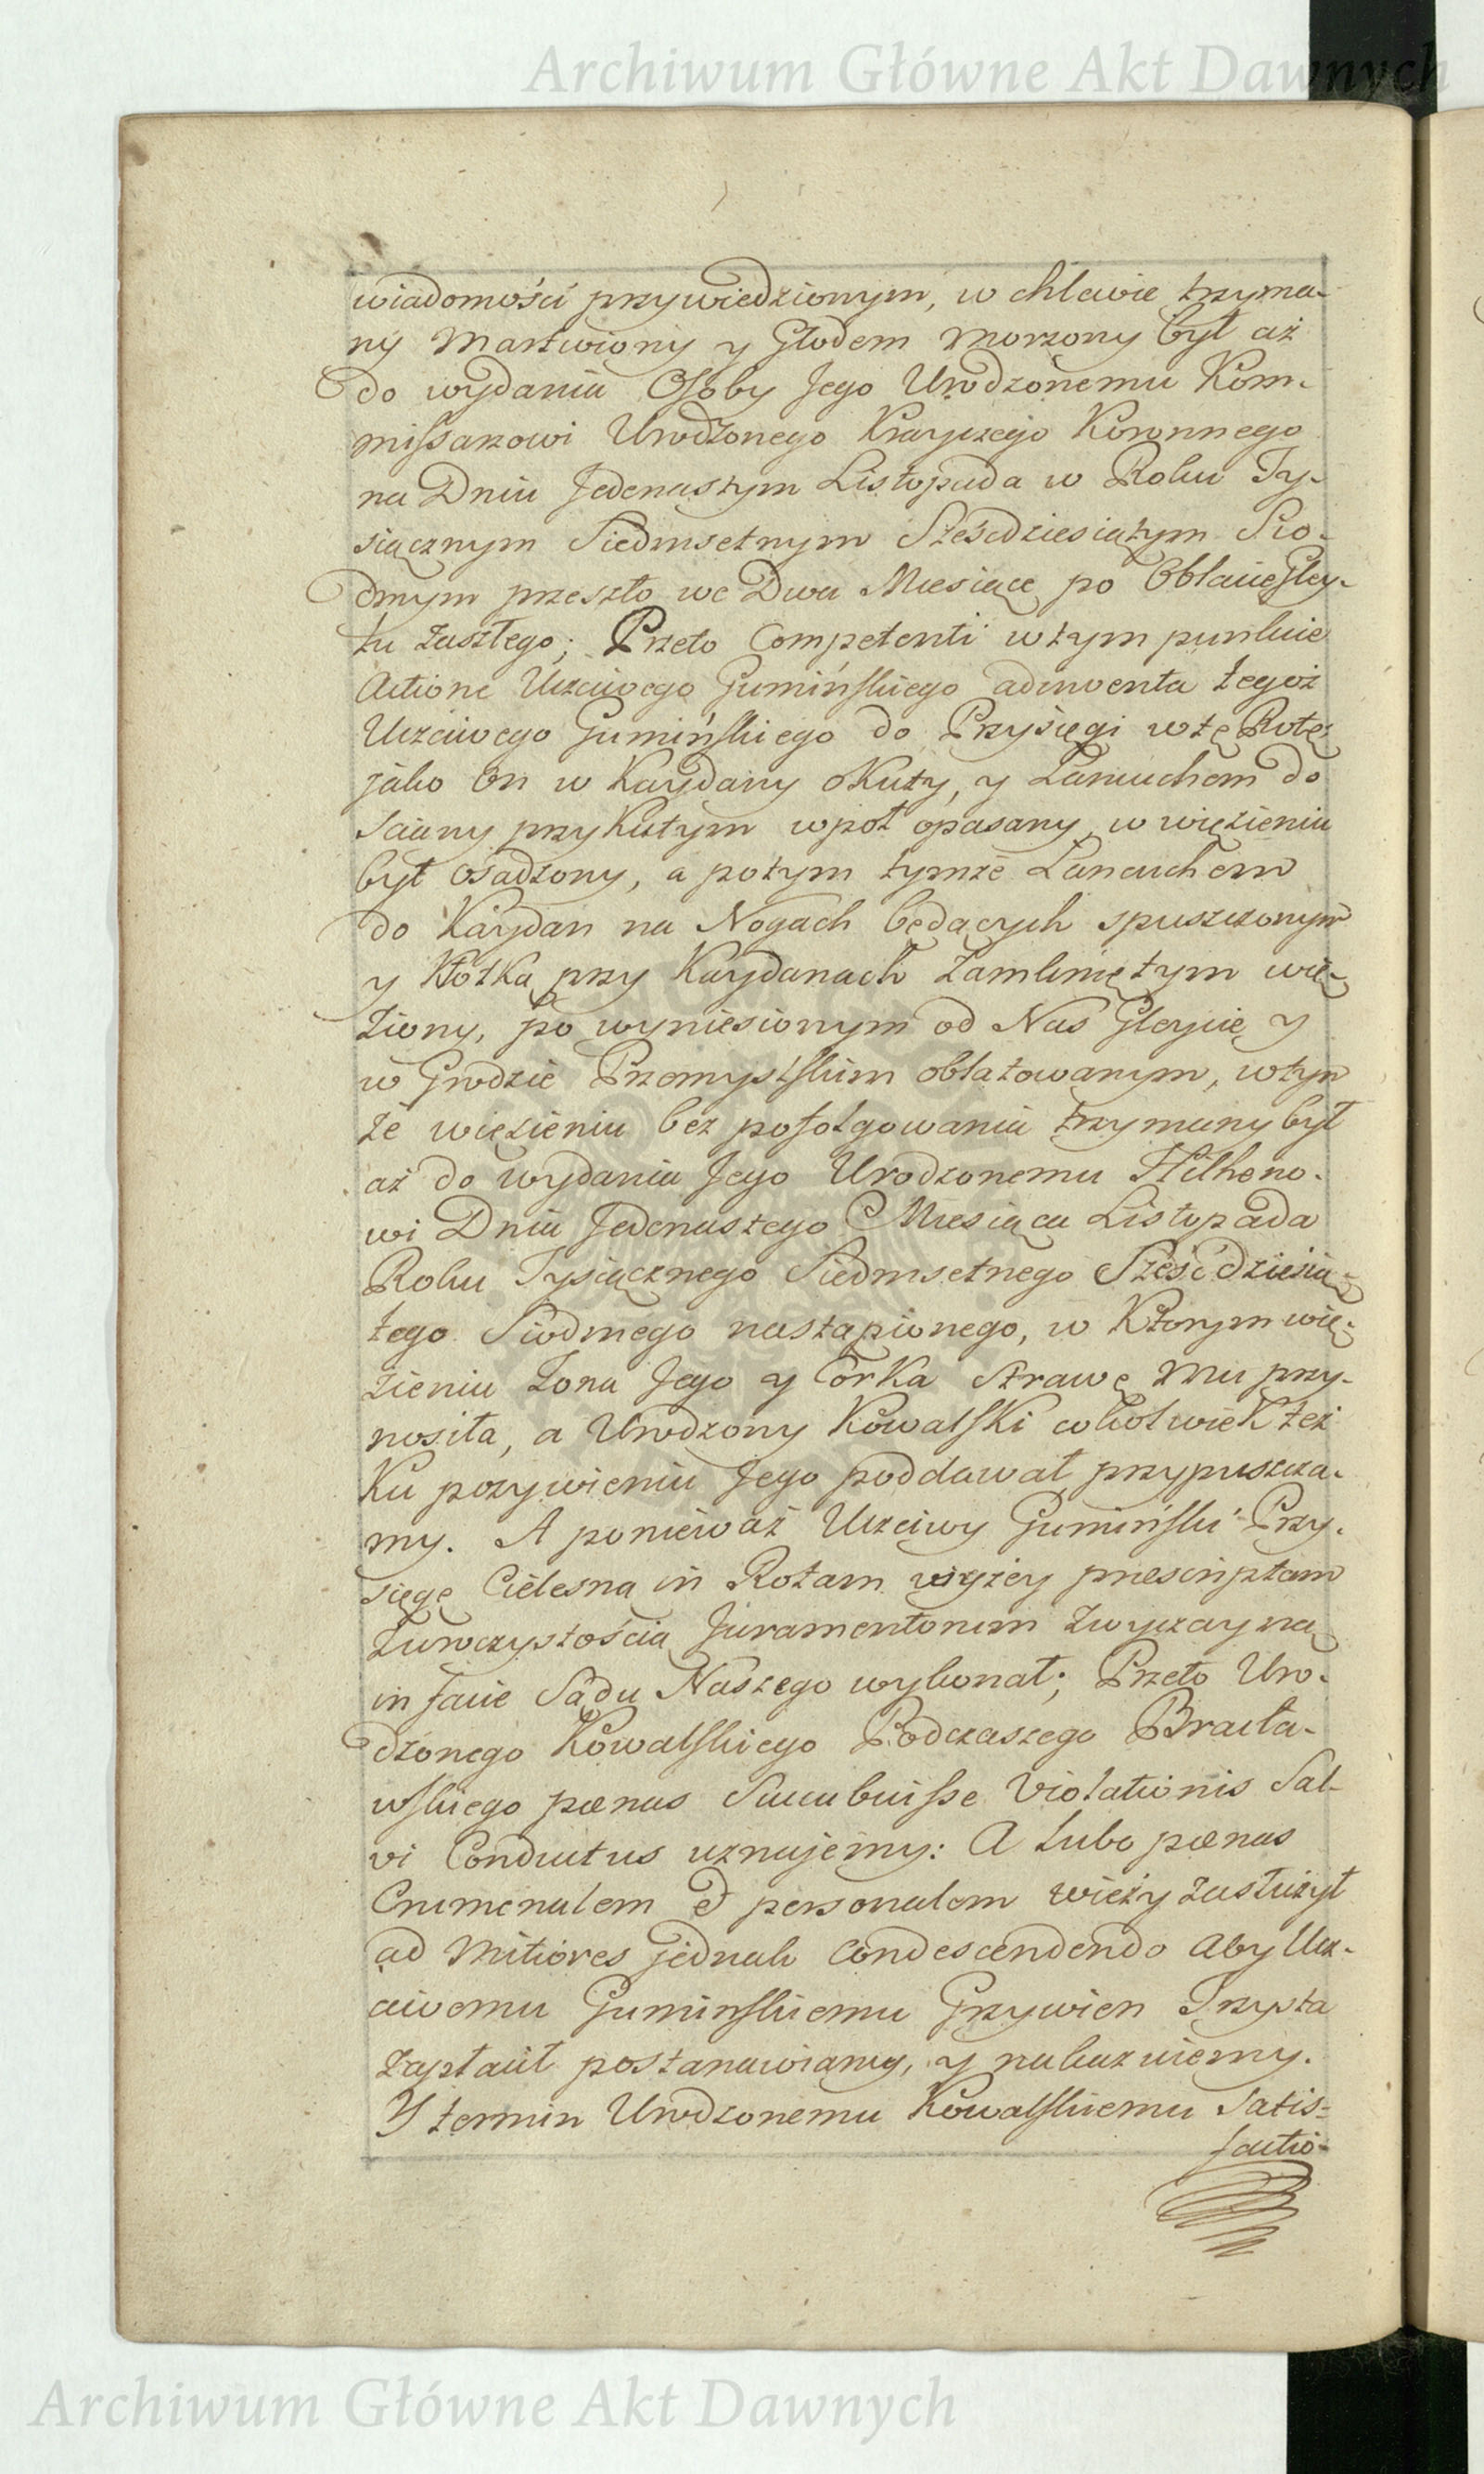 Archiwum Główne Akt Dawnych
wiadomości przywiedzionym, w chlewie trzyma-
ny Martwiony y Głodem Morzony był aż
do wydania Osoby Jego Urodzonemu Kom-
missarzowi Urodzonego Krayczego Koronnego
na Dniu Jedenastym Listopada w Roku Ty-
siącznym Siedmsetnym Sześćdziesiątym Sio-
dmym przeszło we Dwa Miesiące po Oblacie Gley-
tu zaszłego; Przeto Competenti w tym punkcie
Actione Uczciwego Gumińskiego adinventa tegoż
Uczciwego Gumińskiego do Przysięgi w tę Rotę:
jako On w Kaydany okuty, y Łancuchem do
Sciany przykutym wpoł opasany, w więzieniu
był osadzony, a potym tymże Łancuchem
do Kaydan na Nogach będących spuszczonym
y Kłotką przy Kaydanach zamkniętym wię-
ziony, po wyniesionym od Nas Gleycie y
w Grodzie Przemyskim oblatowanym, w tym
że więzieniu bez pofolgowania trzymany był
aż do wydania Jego Urodzonemu Hilheno-
wi Dnia Jedenastego Miesiąca Listopada
Roku Tysiącznego Siedmsetnego Sześćdziesią-
tego Siodmego nastąpionego, w Ktorym wię-
zieniu Zona Jego y Corka Strawę Mu przy-
nosiła, a Urodzony Kowalski cokolwiek też
Ku pozywieniu Jego poddawał przypuszcza-
my. A ponieważ Uczciwy Gumiński Przy-
sięgę Cielesną in Rotam wyżey præscriptam
Zuroczystością Juramentorum zwyczayną
in facie Sądu Naszego wykonał; Przeto Uro-
dzonego Kowalskiego Podczaszego Bracła-
wskiego pœnas Succubuisse Violationis Sal-
vi Conductus uznajemy: A lubo pœnas
Criminalem et personalem wieży zasłużył
ad Mitiores jednak Condescendendo Aby Ucz-
ciwemu Gumińskiemu Grzywien Trzysta
zapłacił postanawiamy, y nakazuiemy.
Y termin Urodzonemu Kowalskiemu Satis=
factio-
Archiwum Główne Akt Dawnych